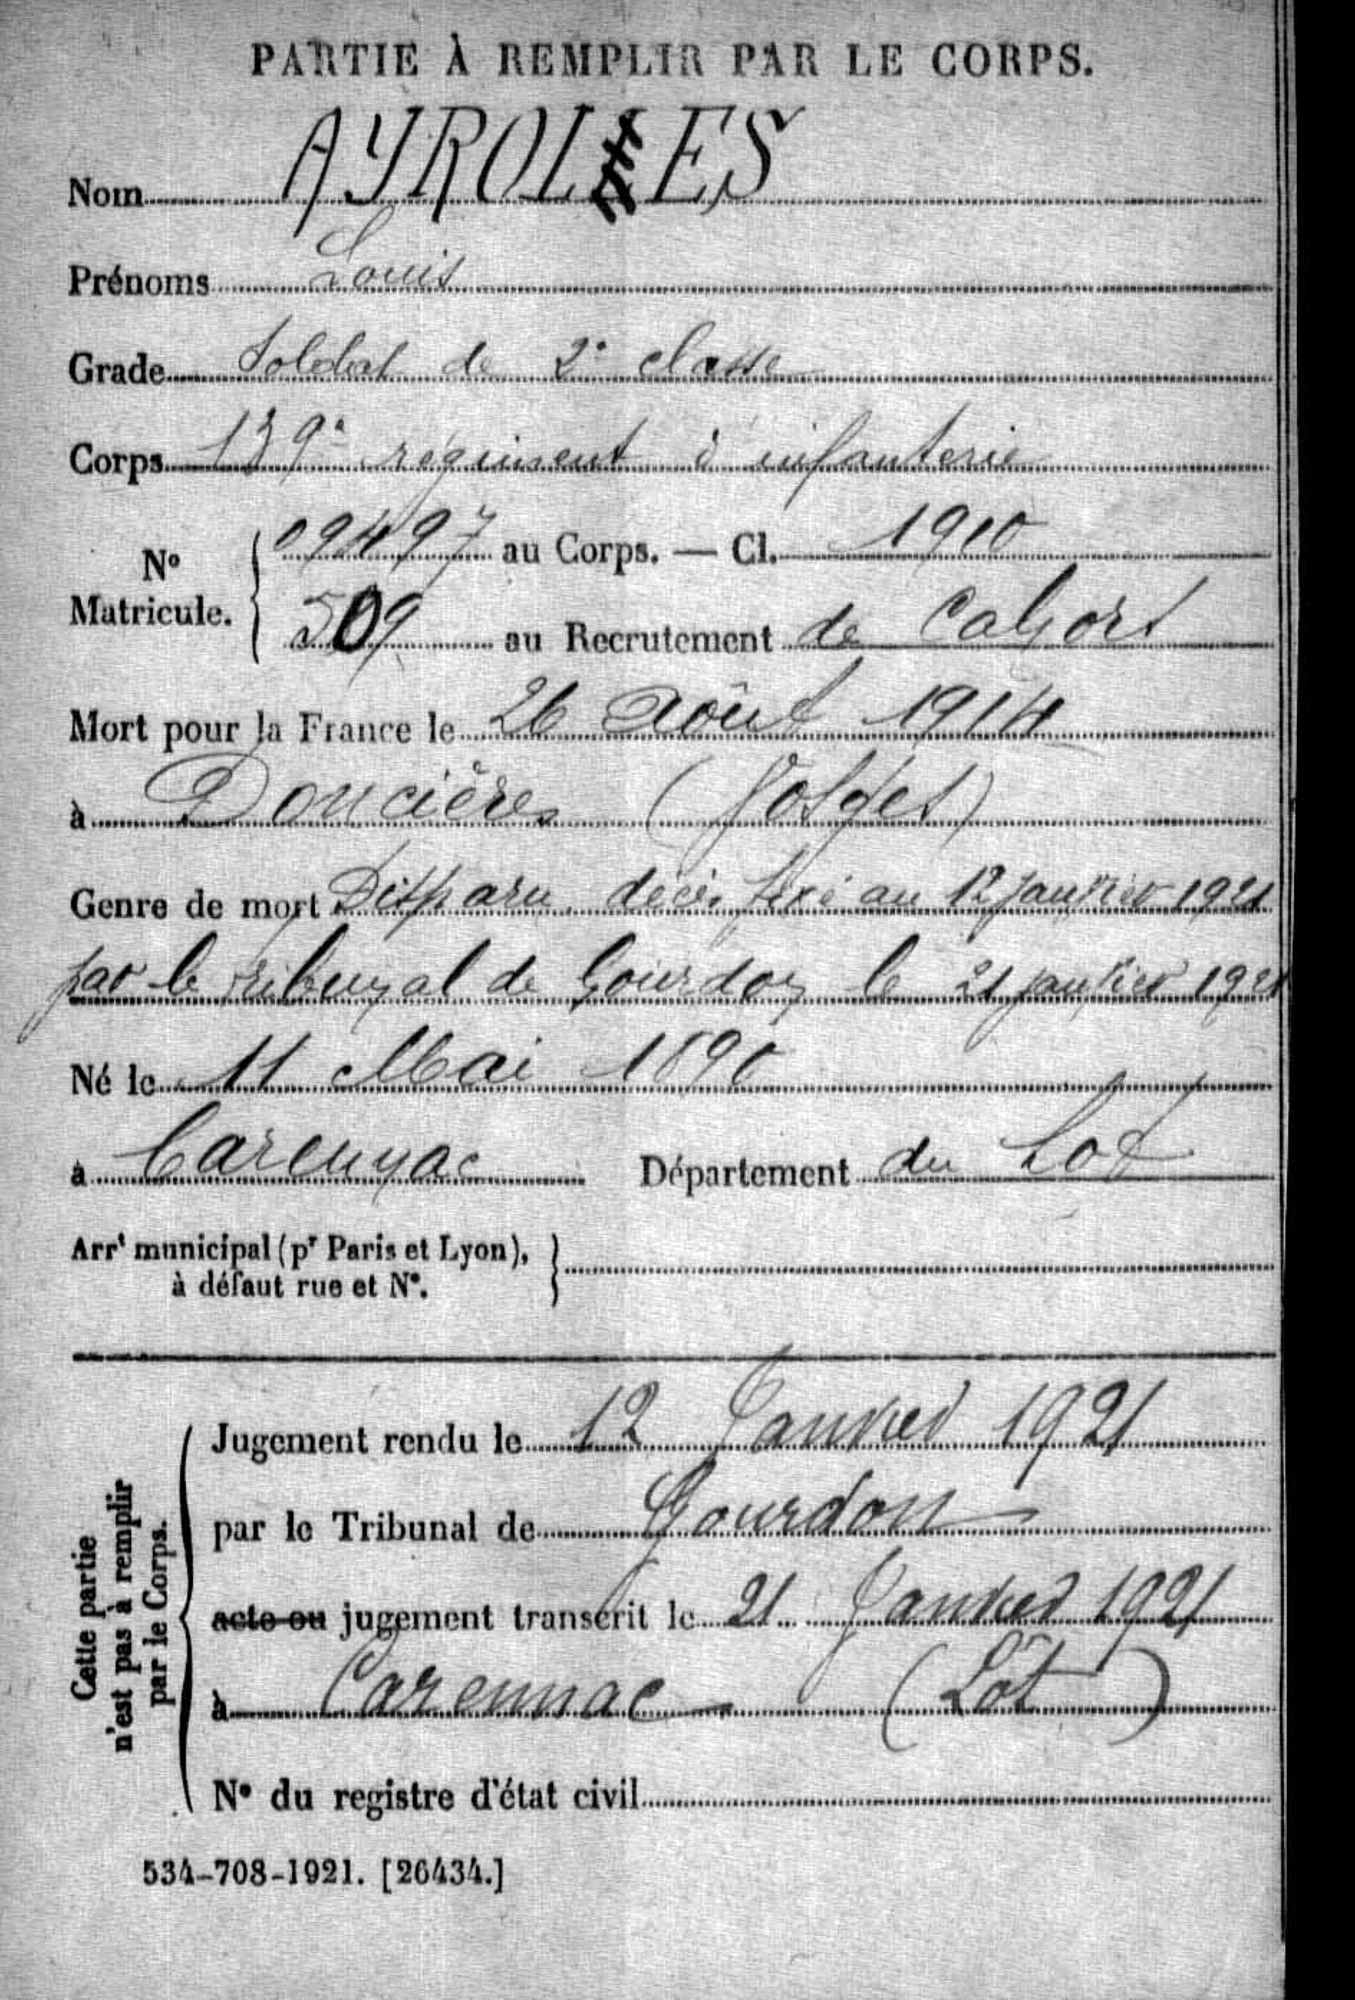 PARTIE À REMPLIR PAR LE CORPS.
Nom AYROLES
Prénoms Louis
Grade Soldat de 2e classe
Corps 139e régiment d'infanterie
No Matricule. { 09497 au Corps. — Cl. 1910
509 au Recrutement de Cahors
Mort pour la France le 26 Août 1914
à Doncières (Vosges)
Genre de mort Disparu. décès fixé au 12 janvier 1921
par le tribunal de Gourdon le 21 janvier 1921
Né le 11 Mai 1890
à Carennac Département du Lot
Arrt municipal (pr Paris et Lyon), }
à défaut rue et No.
Cette partie n'est pas à remplir par le Corps.
Jugement rendu le 12 Janvier 1921
par le Tribunal de Gourdon
acte ou jugement transcrit le 21 Janvier 1921
à Carennac (Lot)
No du registre d'état civil
534-708-1921. [26434.]